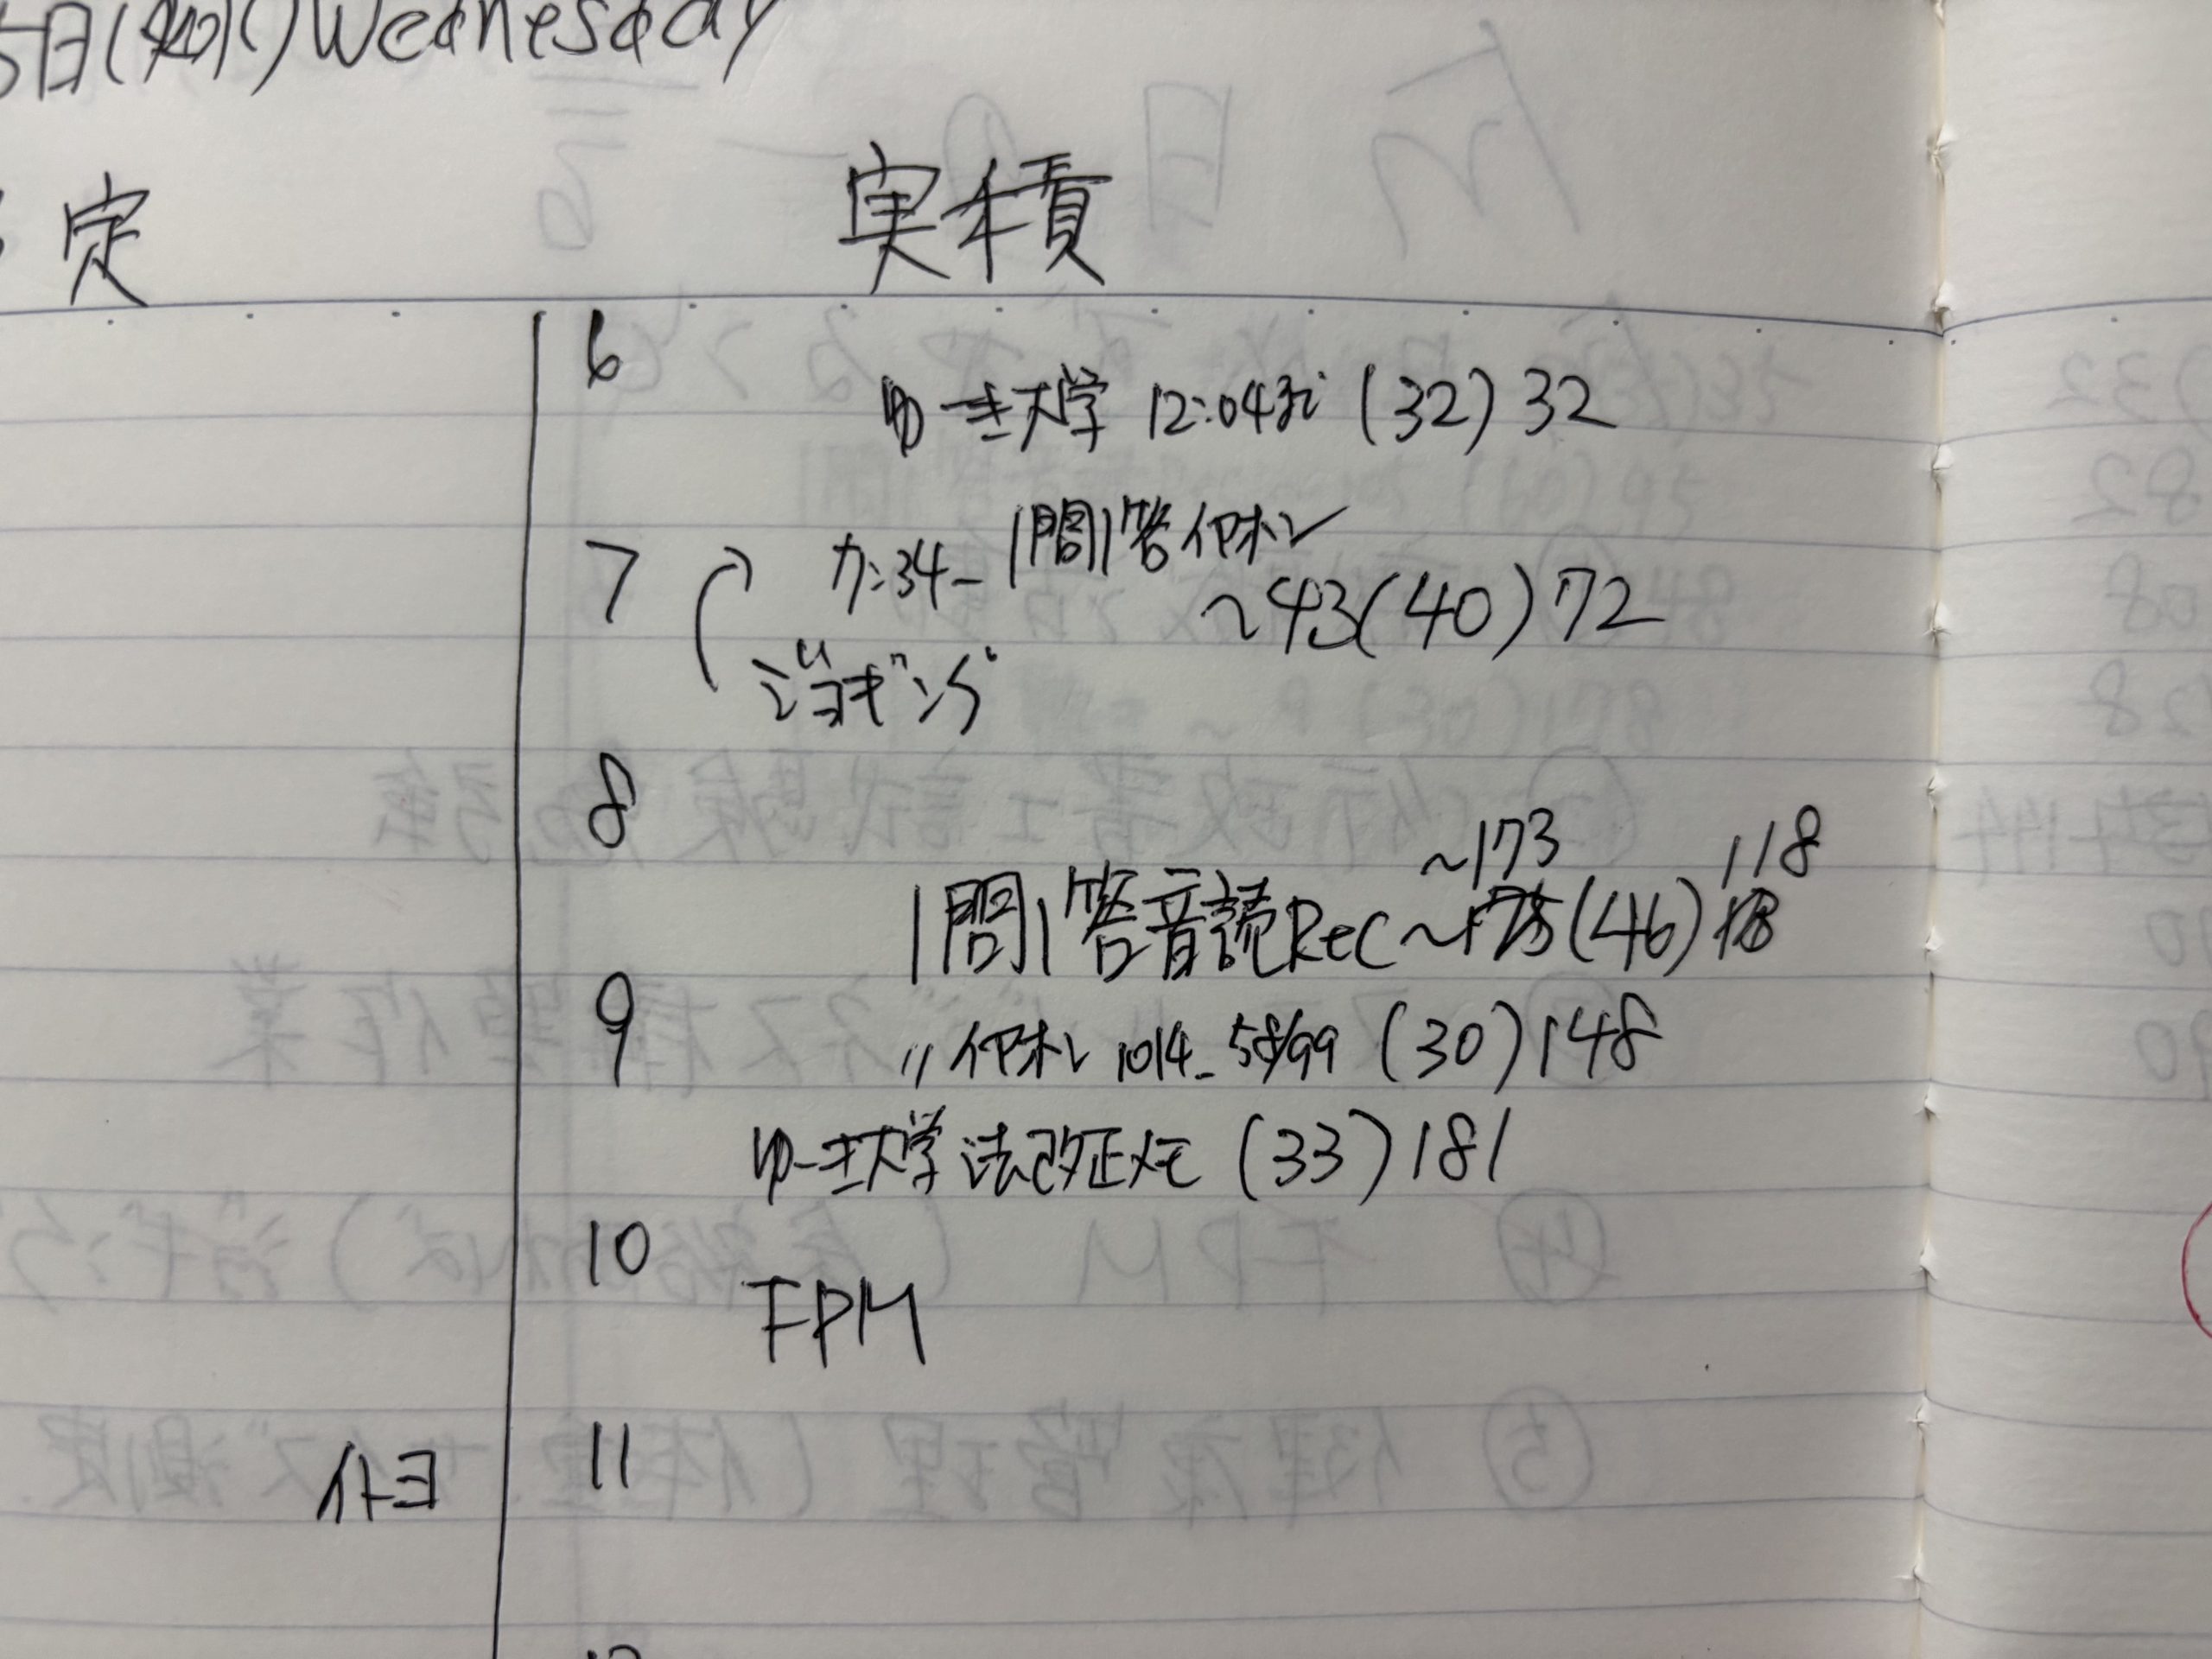 5日(水) Wednesday
定
実積
6
ゆーき大学 12:04迄 (32) 32
7 7:34- 1問1答イヤホン
~43(40)72
ジョギング
8
~173 118
1問1答音読Rec (46)
9
〃イヤホン 1014-58/99 (30)148
ゆーき大学法改正メモ (33)181
10
FPM
11